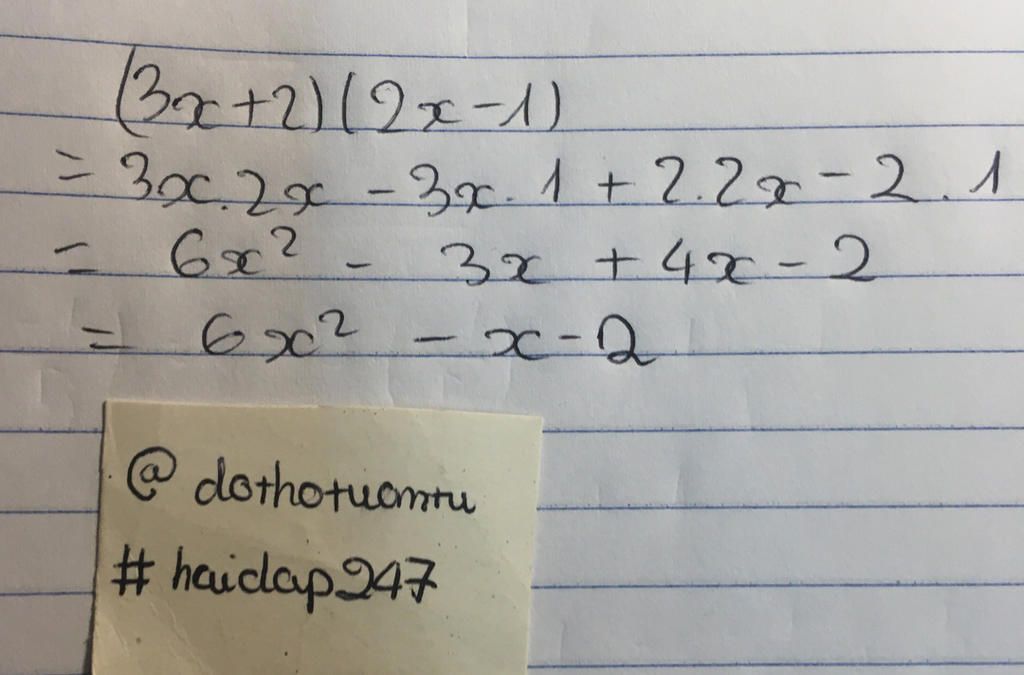 (3x+2)(2x-1)
= 3x.2x - 3x.1 + 2.2x - 2.1
= 6x² - 3x + 4x - 2
= 6x² - x - 2
@ dothotuantu
# haidap247